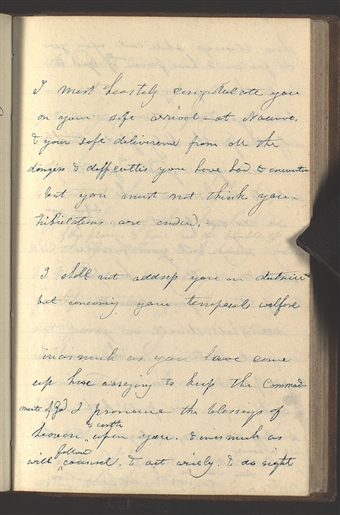 I most heartily congratulate you
on your safe arrival at Nauvoo.
& your safe deliverence from all the
dangers & difficulties you have had to encounter
but you must not think your
tribulations are ended.
I shall not address you on doctrine
but concerning your temporal welfare
inasmuch as you have come
up here assaying to keep the Command-
ments of God I pronounce the blessings of
heaven & earth upon you. & inasmuch as
will follow counsel. & act wisely. & do right